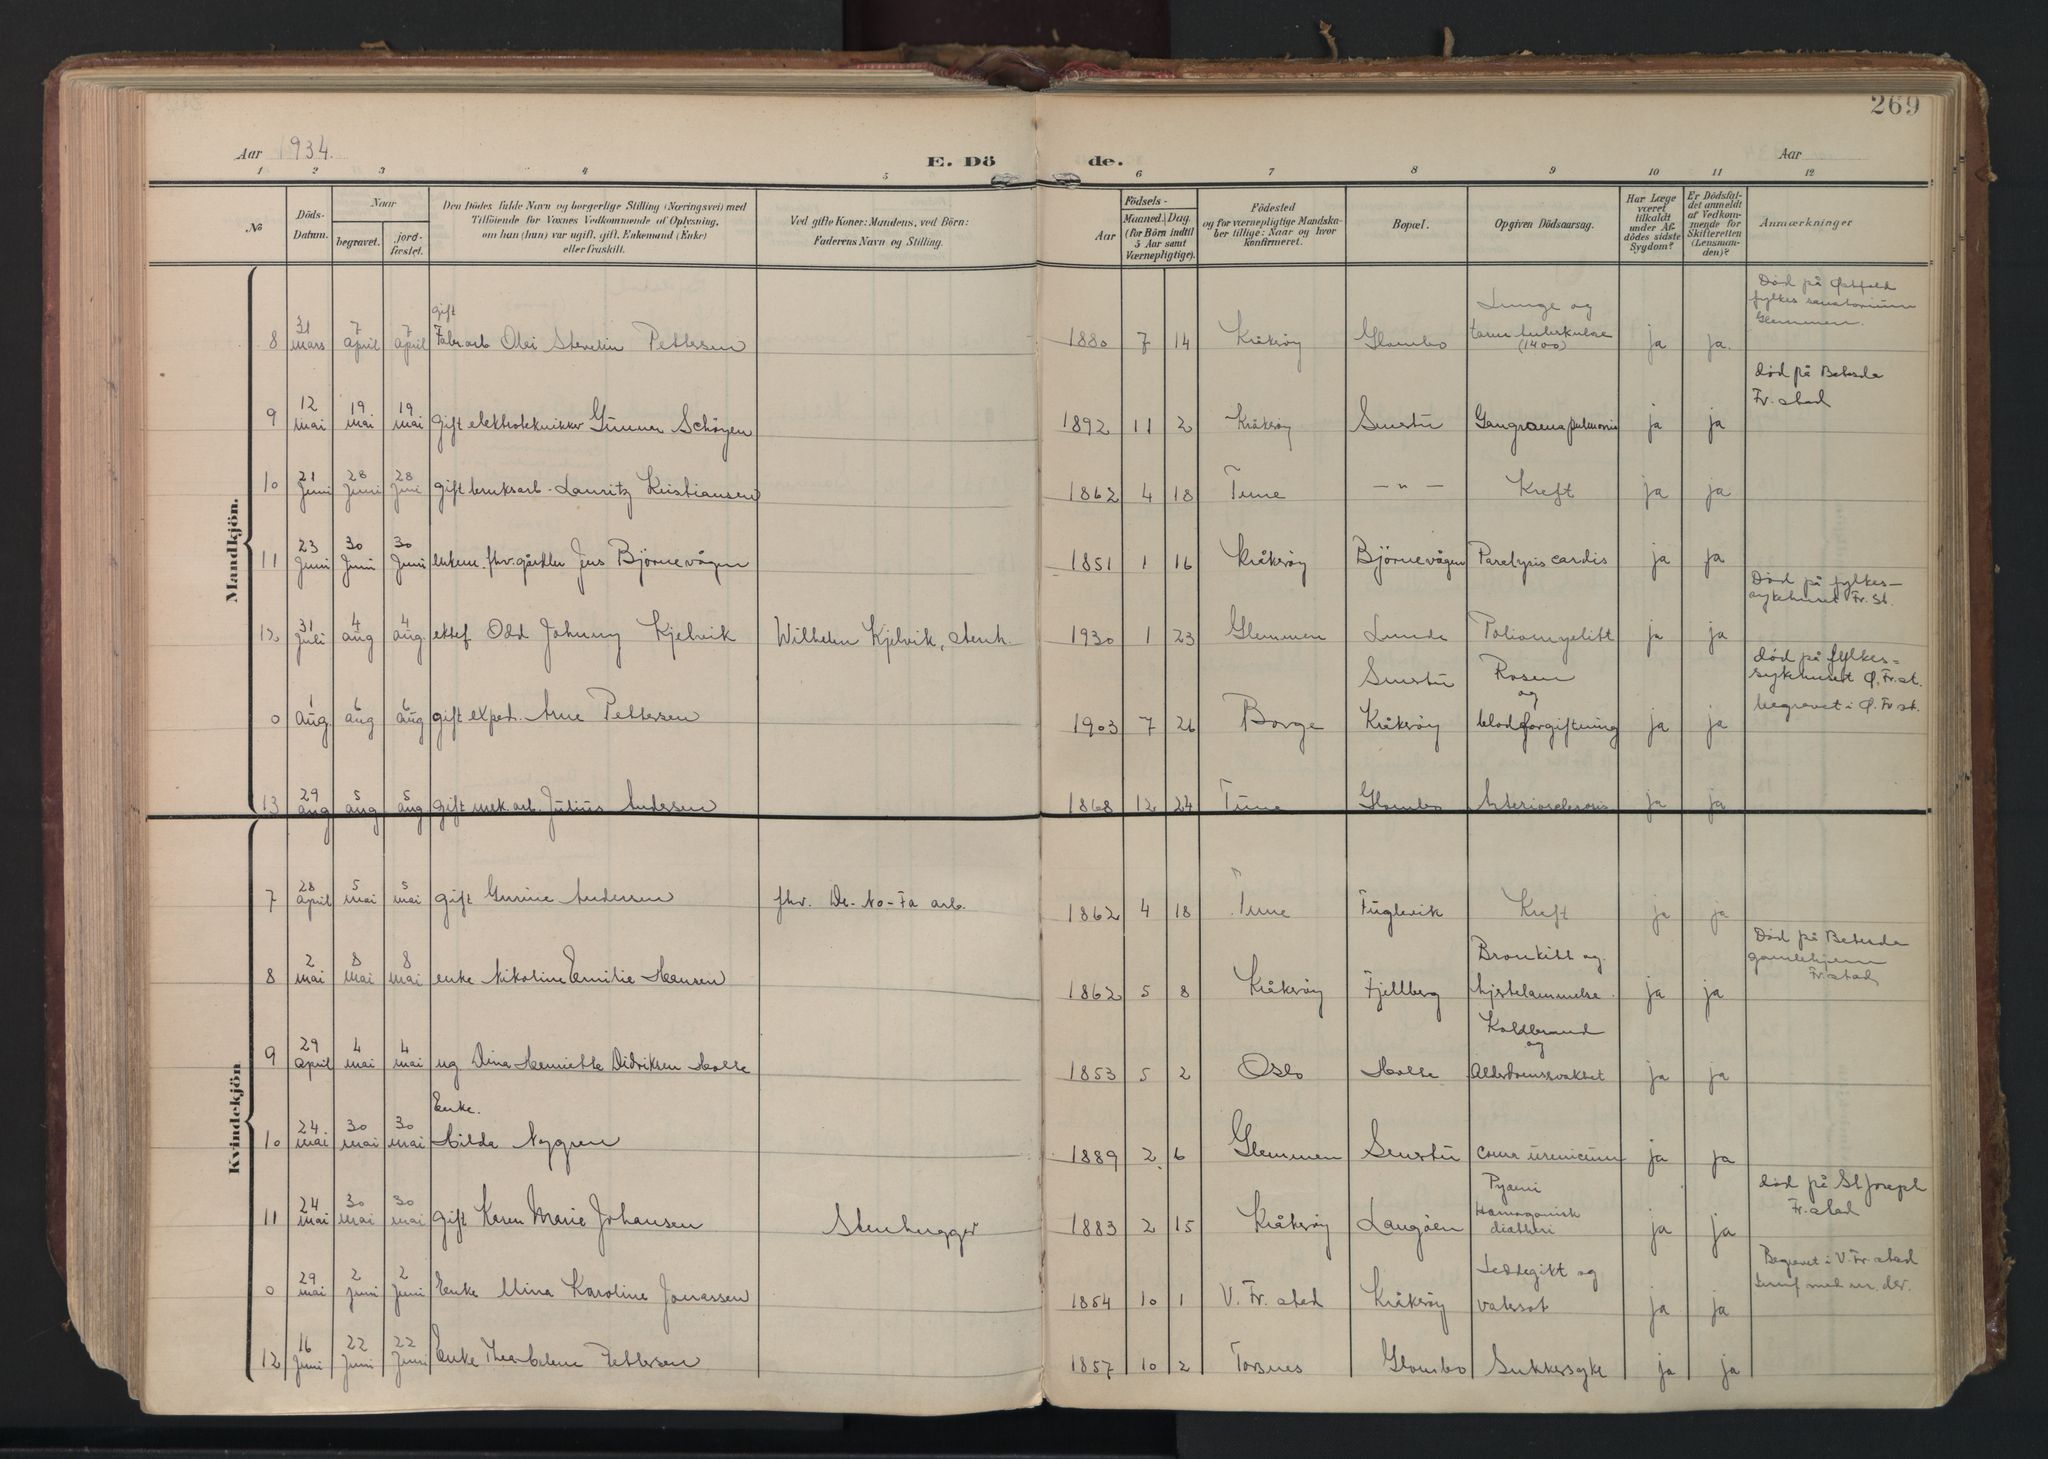 269
Aar 1934.
E. Dö
de.
Aar
1 2 3 4 5 6 7 8 9 10 11 12
No
Döds-Datum.
Naar
begravet.
jordfæstet.
Den Dödes fulde Navn og borgerlige Stilling (Næringsvei) med
Tilföiende for Voxnes Vedkommende af Oplysning,
om han (hun) var ugift, gift, Enkemand (Enke)
eller fraskilt.
Ved gifte Koner: Mandens, ved Börn:
Faderens Navn og Stilling.
Födsels-
Aar
Maaned. Dag.
(for Börn indtil
5 Aar samt
Værnepligtige).
Födested
og for værnepligtige Mandska-
ber tillige: Naar og hvor
Konfirmeret.
Bopæl.
Opgiven Dödsaarsag.
Har Læge
været
tilkaldt
under Af-
dödes sidste
Sygdom?
Er Dödsfal-
det anmeldt
af Vedkom-
mende for
Skifteretten
(Lensman-
den)?
Anmærkninger
Mandkjön.
8 31 mars 7 april 7 april gift Fabr.arb Olai Severin Pettersen 1880 7 14 Kråkröy Glombo Lunge og tarm tuberkulose (1400) ja ja. Död på Østfold fylkes sanatorium Glemmen.
9 12 mai 19 mai 19 mai gift elektrotekniker Gunnar Schöyen 1892 11 2 Kråkröy Smertu Gangraena pulmonis ja ja död på Betesda Fr.stad
10 21 Juni 28 Juni 28 Juni gift bruksarb. Lauritz Kristiansen 1862 4 18 Tune — " — Kreft ja ja
11 23 Juni 30 Juni 30 Juni enkem. fhv. gårdbr Jens Björnevågen 1851 1 16 Kråkröy Björnevågen Paralysis cardis ja ja
12 31 Juli 4 aug 4 aug. ektef Odd Johnny Kjelvik Wilhelm Kjelvik, stenh. 1930 1 23 Glemmen Lunde Poliomyelitt ja ja Död på fylkes- sykehuset Fr.st.
0 1 aug. 6 aug 6 aug gift exped. Arne Pettersen 1903 7 26 Borge Smertu Kråkröy Rosen og blodforgiftning ja ja död på fylkes- sykehuset Ø. Fr.st. begravet i Ø. Fr.st.
13 29 aug 5 aug 5 aug gift mek. arb. Julius Andersen 1868 12 24 Tune Glombo Arteriosclerosis ja ja
Kvindekjön
7 28 april 5 mai 5 mai gift Gurine Andersen fhv. De-No-Fa arb. 1862 4 18 Tune Fuglevik Kreft ja ja
8 2 mai 8 mai 8 mai enke Nikoline Emilie Hansen 1862 5 8 Kråkröy Fjellberg Bronkitt og hjertelammelse. ja ja Död på Betesda gamlehjem Fr.stad
9 29 april 4 mai 4 mai ug Dina Henriette Didriksen Holte 1853 5 2 Oslo Holte Koldbrand og Alderdomssvakhet ja ja
10 24 mai. 30 mai 30 mai Enke. Hilda Nygren 1889 2 6 Glemmen Smertu coma uremicum ja ja
11 24 mai 30 mai 30 mai gift Karen Marie Johansen Stenhugger 1883 2 15 Kråkröy Langöen Pyæmi ja ja död på St Joseph Fr.stad
0 29 mai 2 juni 2 Juni Enke Mina Karoline Jonassen 1854 10 1 V. Fr. stad Kråkröy Leddegikt og vatersot ja ja Begravet i V. Fr.stad
12 16 Juni 22 Juni 22 Juni Enke Thea Helene Pettersen 1857 10 2 Torsnes Glombo Sukkersyke ja ja